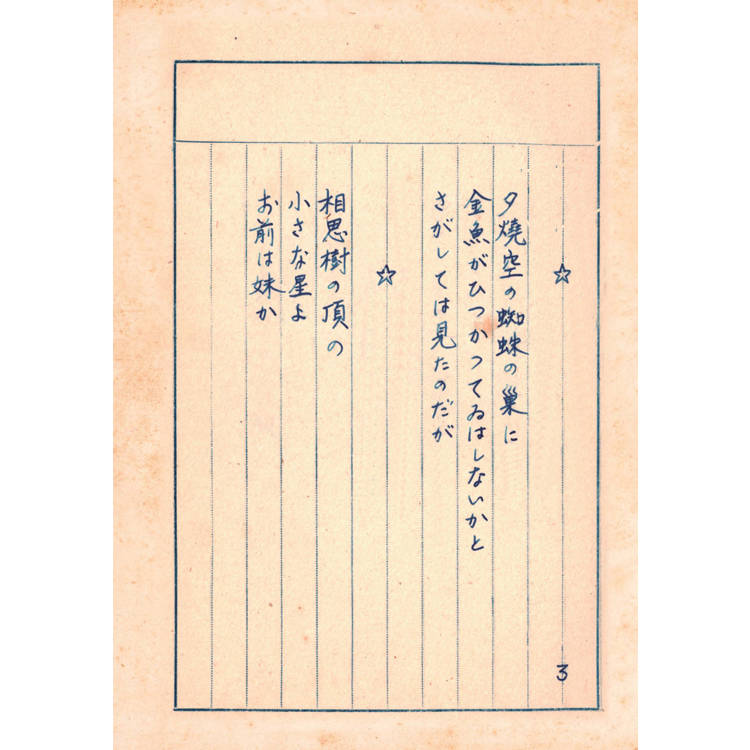 ☆
夕燒空の蜘蛛の巣に
金魚がひつかつてゐはしないかと
さがしては見たのだが
☆
相思樹の頂の
小さな星よ
お前は妹か
3